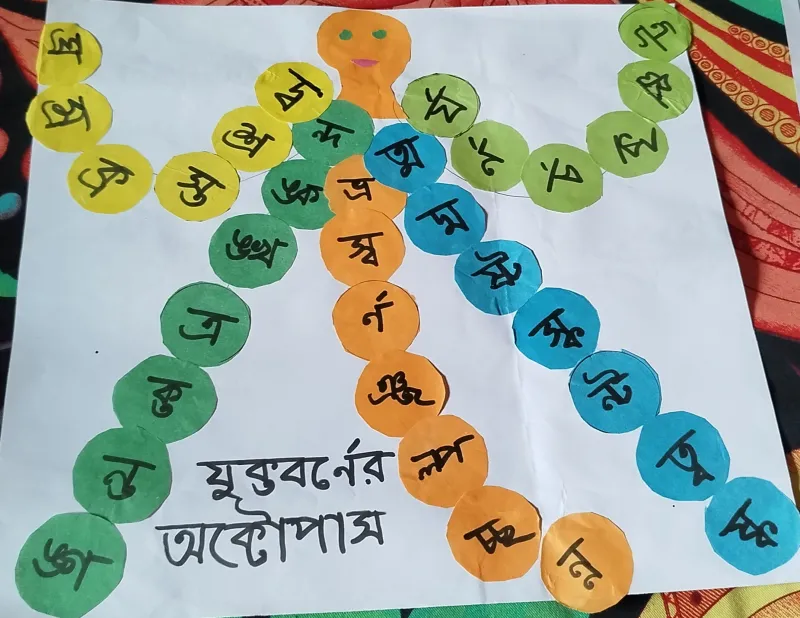 ন্দ
ঙ্ক
ঙ্খ
ত্র
ক্ত
ন্ত
ঙ্গ
স্ত
ভ্র
স্ব
র্ন
ঞ্জ
ল্প
চ্ছ
ন্ন
ত্ম
দ্ম
ষ্ট
স্ক
ন্ট
ত্ব
র্চ
যুক্তবর্নের
অক্টোপাস